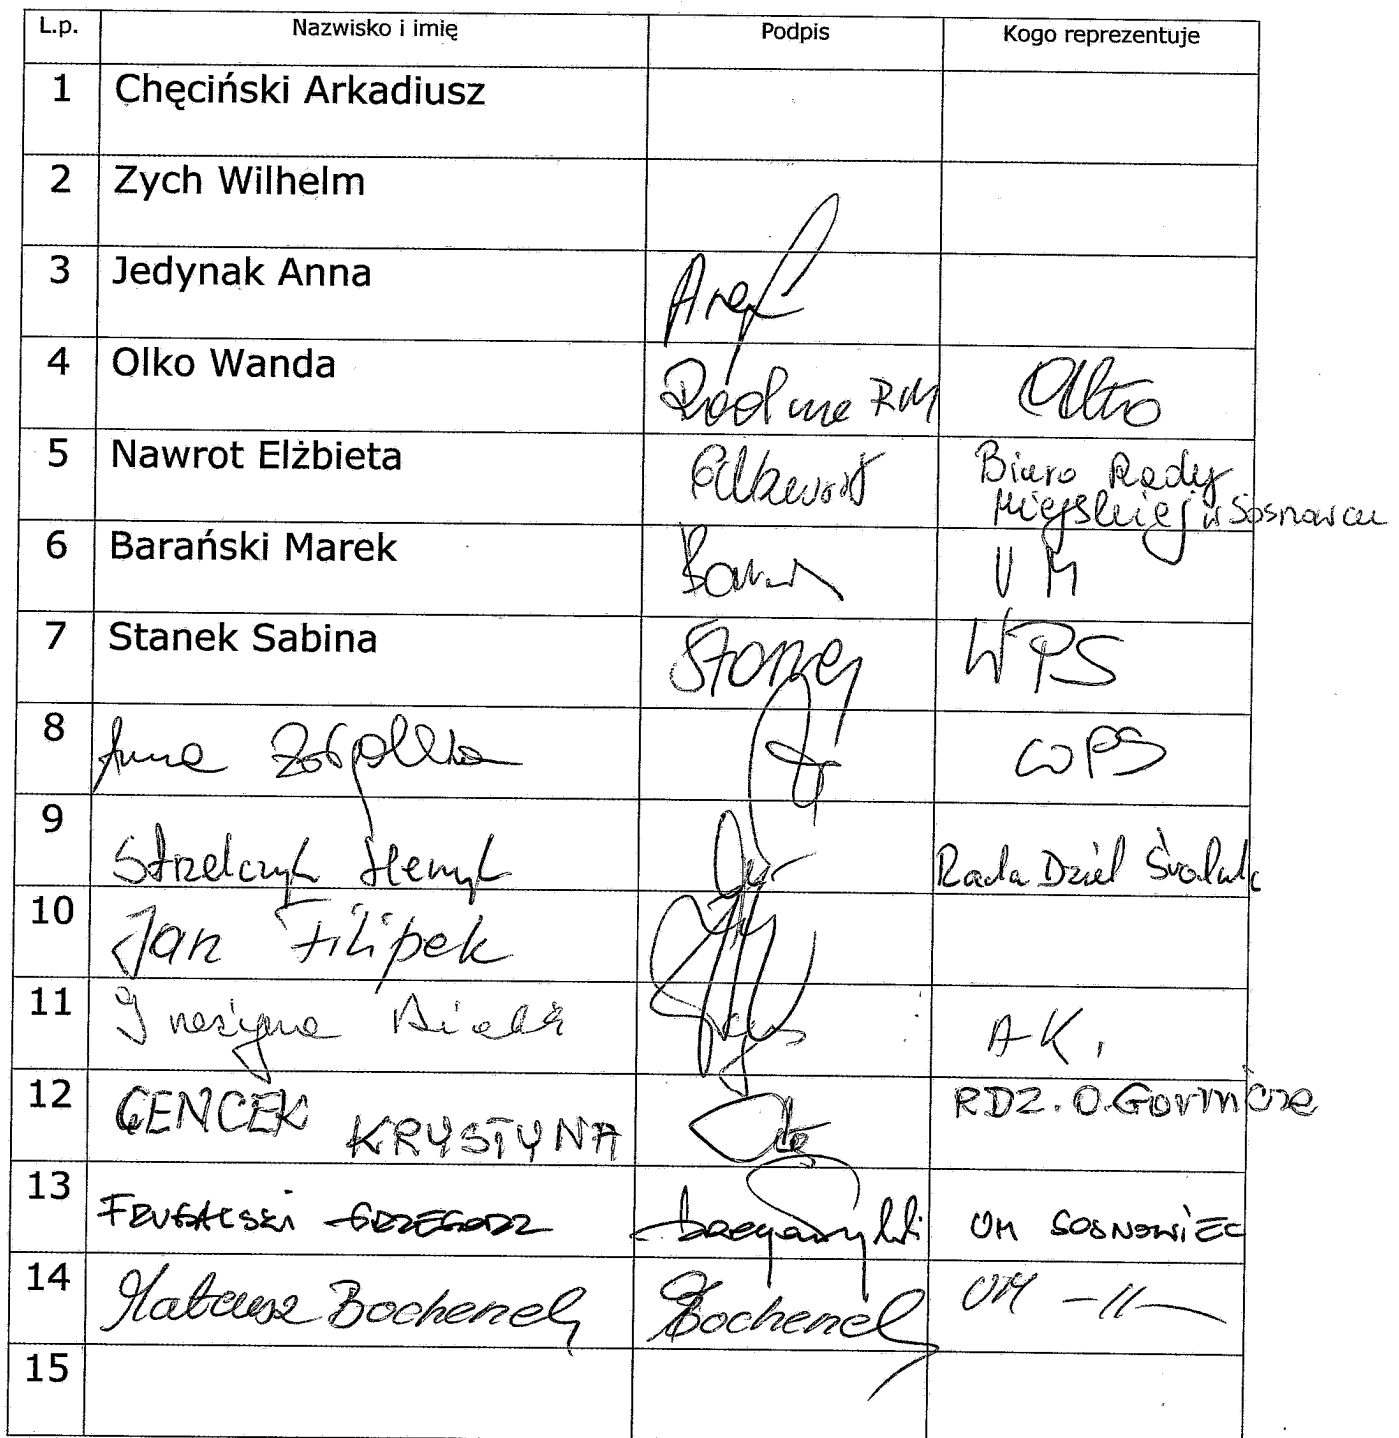 L.p. Nazwisko i imię Podpis Kogo reprezentuje
1 Chęciński Arkadiusz
2 Zych Wilhelm
3 Jedynak Anna
4 Olko Wanda Radna RM Olko
5 Nawrot Elżbieta Biuro Rady
Miejskiej w Sosnowcu
6 Barański Marek UM
7 Stanek Sabina WPS
8 Anna WPS
9 Strzelczyk Henryk Rada Dziel
10 Jan Filipek
11 A K.
12 GENCEK KRYSTYNA RDZ. O.Górnicze
13 GRZEGORZ UM SOSNOWIEC
14 Mateusz Bochenek Bochenek UM -11-
15